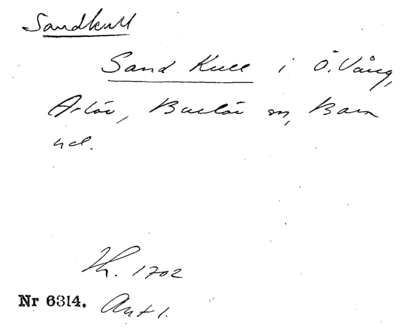 Sandkull
Sand Kull i Ö. Vång,
Arlöv, Burlöv sn, Bara
hd.
Lh. 1702
Nr 6314. Ant 1.